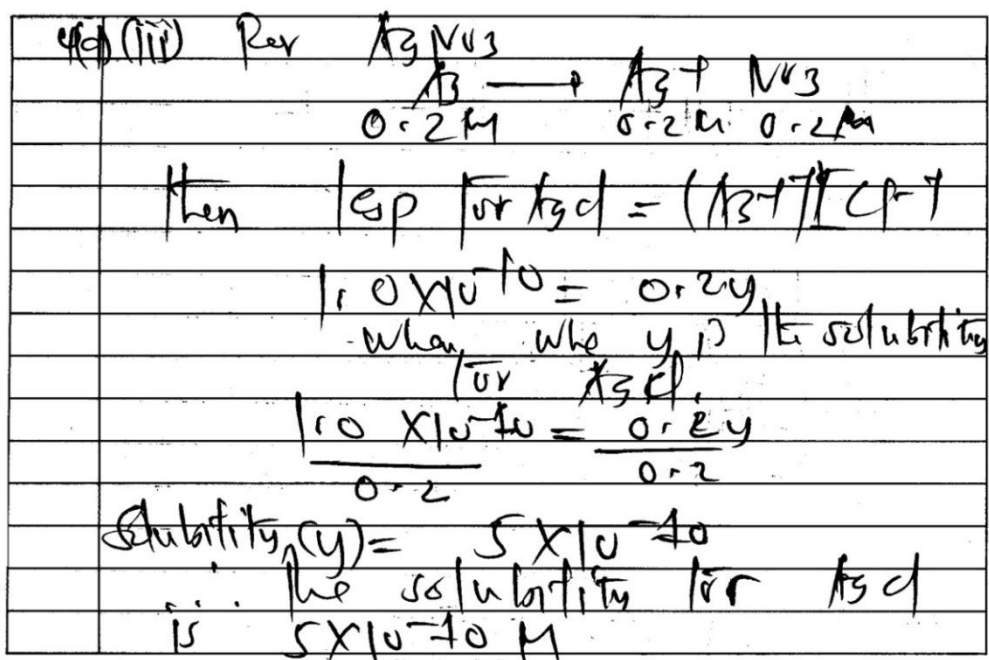 4(d) (iii) For AgNO3
Ag → Ag+ NO3
0.2M 0.2M 0.2M
then Ksp for AgCl = [Ag+][Cl-]
1.0 X 10-10 = 0.2y
when whe y is the solubility
for AgCl.
1.0 X 10-10 = 0.2y
0.2 0.2
Solubility (y) = 5 X 10-10
∴ The solubility for AgCl
is 5 X 10-10 M